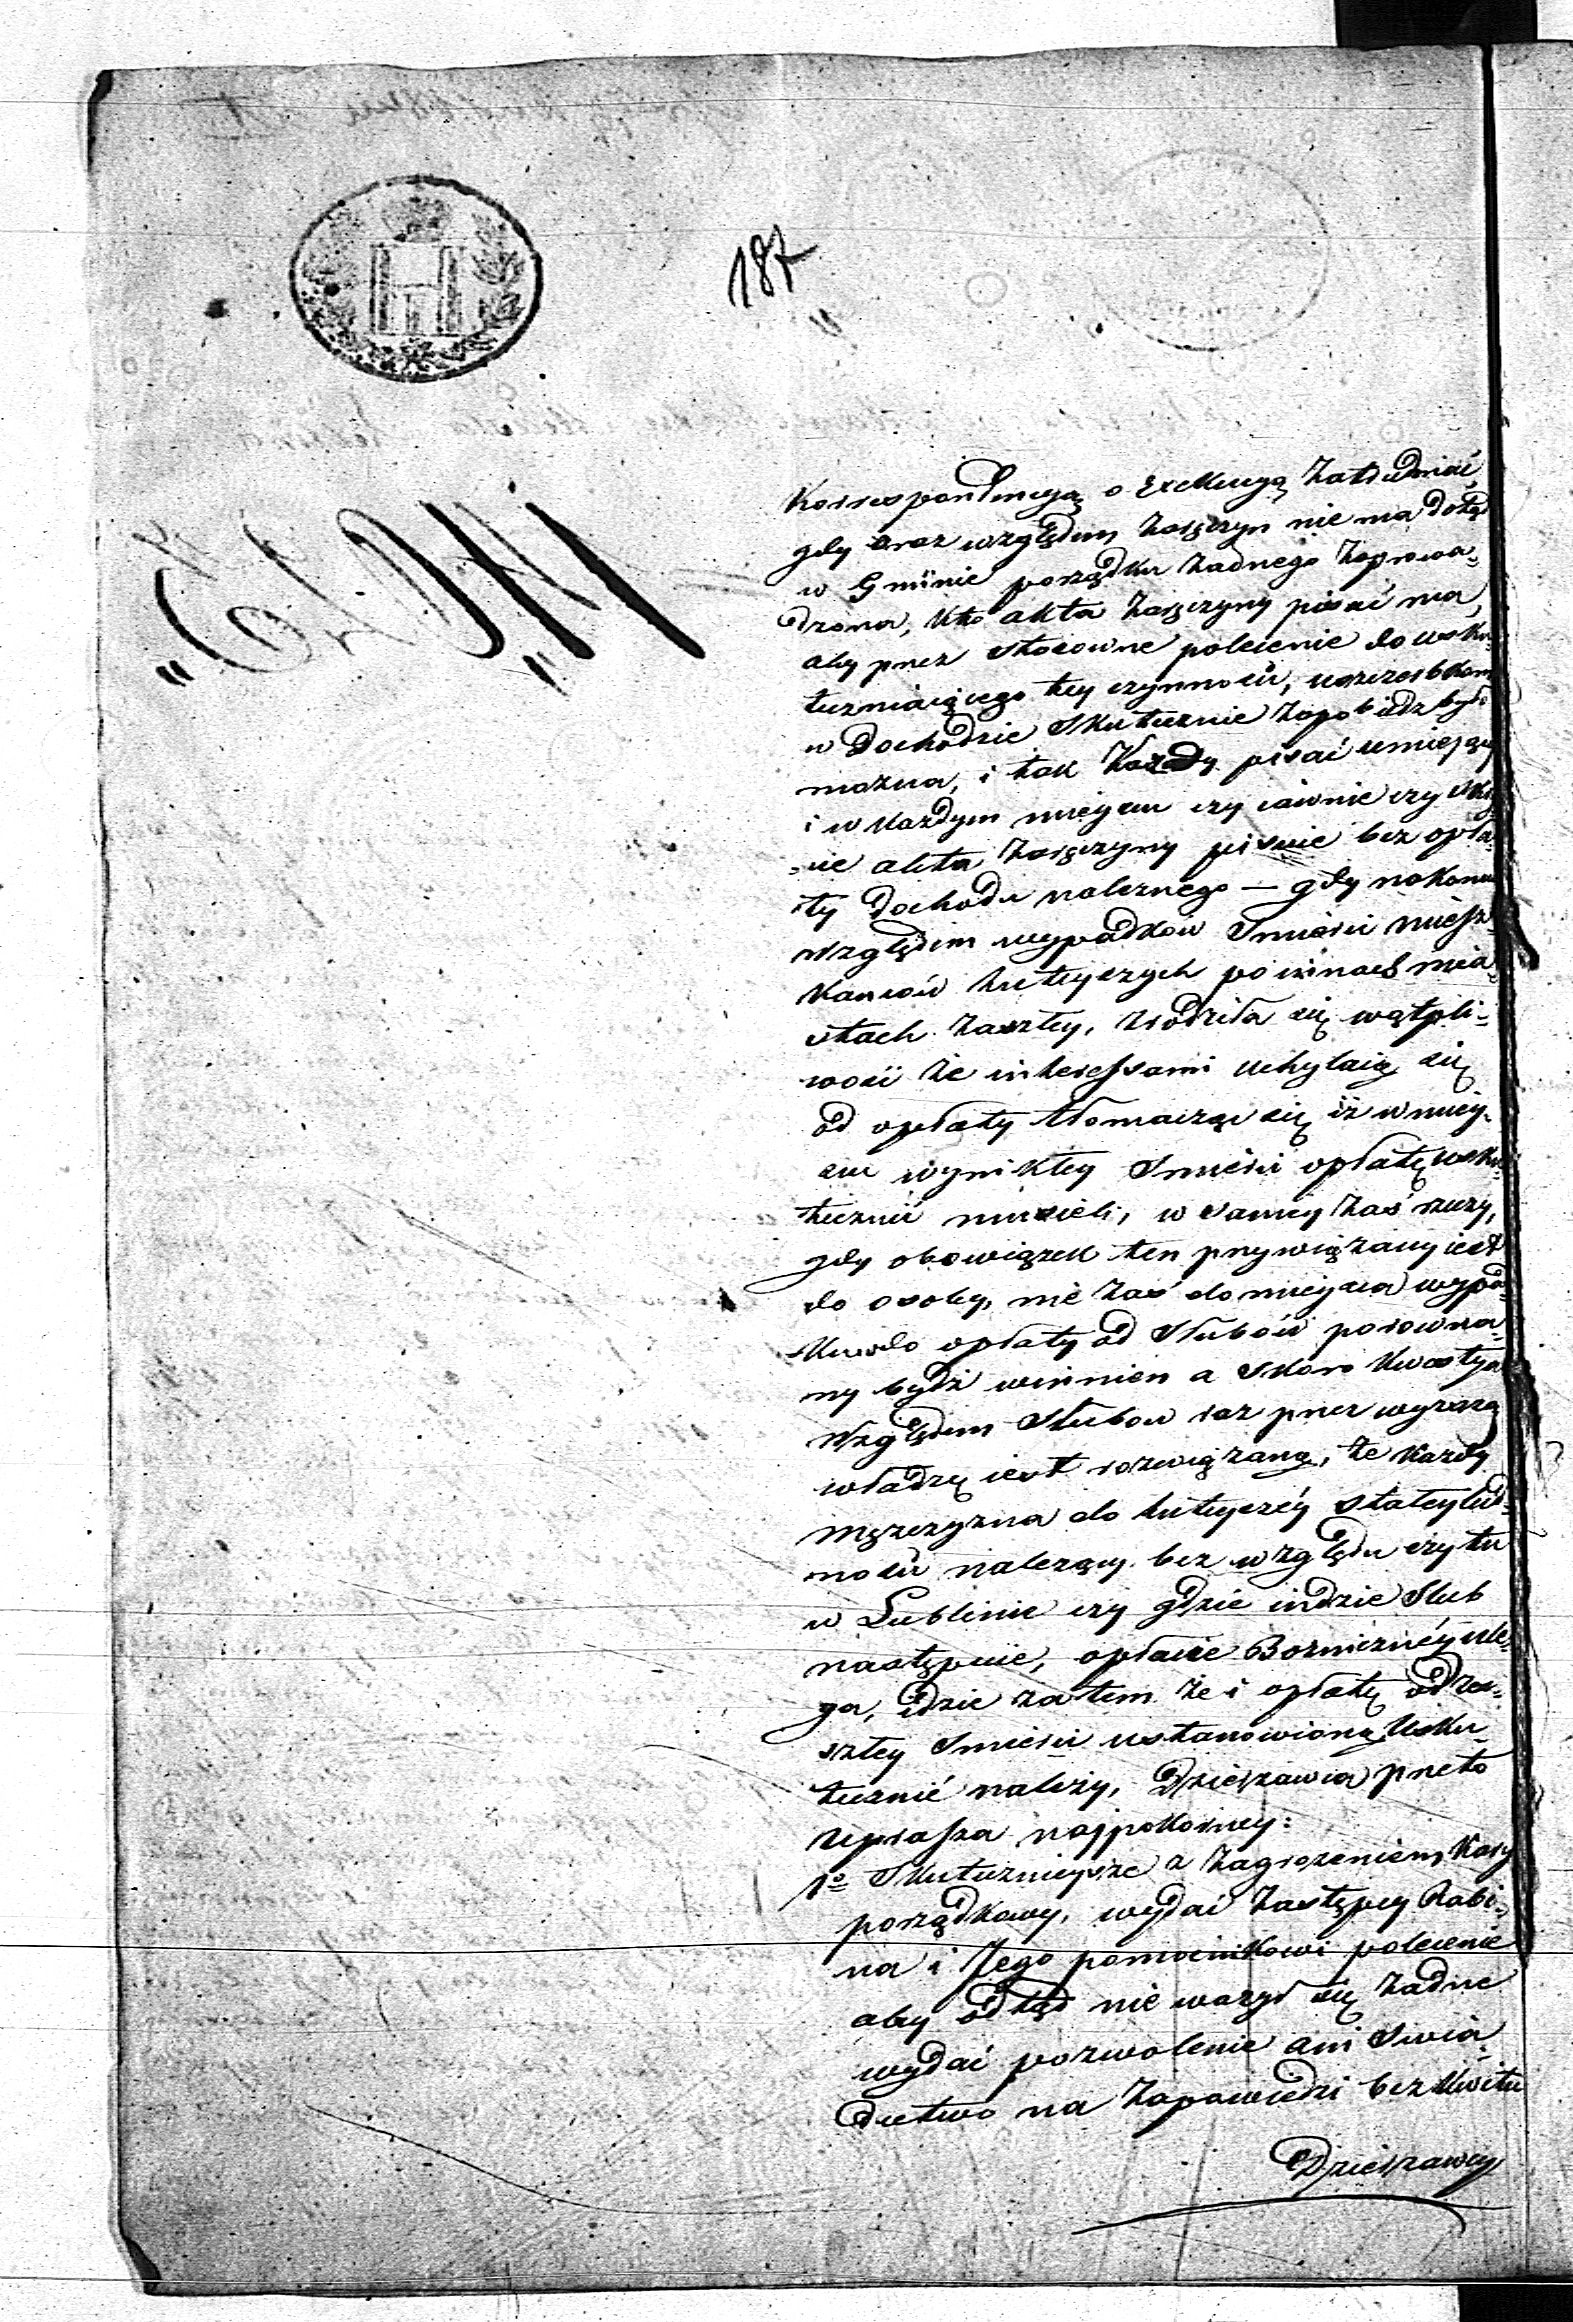 187
Korrespondencyą o Exekucyą zatrudniać,
gdy oraz względem zaręczyn nie ma dotąd
w Gminie porządku żadnego zaprowa-
dzona, kto akta zaręczyny pisać ma,
aby przez stosowne polecenie do usku-
teczniaiącego tey czynności, uszczerbkom
w dochodzie skutecznie zapobiedz było
można, i tak każdy pisać umiejący
i w każdym mieyscu czy iawnie czy skry-
cie akta zaręczyny pisuie bez opła-
ty dochodu należnego — gdy nakoniec
względem wypadków Smierci miesz-
kancow tuteyszych po innach mia-
stach zaszłey, zrodziła się wątpli-
wość że interessanci uchylaią się
od opłaty tłomacząc się iż w miey-
scu wynikłey Smierci opłatę usku-
tecznić musieli, w samey zaś rzeczy,
gdy obowiązek ten przywiązany iest
do osoby, nie zaś do mieysca wypad-
ku, do opłaty od Slubów porowna-
ny bydź winnien a skoro kwestya
względem Slubow raz przez wyzszą
władzę iest rozwiązaną, że każdy
męszczyzna do tuteyszéy stałey lud-
ności należący bez względu czy tu
w Lublinie czy gdzie indzie Slub
nastąpuie, opłacie Bożniczney ule-
ga, idzie zatem że i opłatę od za-
szłey Smierci ustanowioną usku-
tecznić należy, Dzierżawca przeto
uprasza naypokorniey:
1º Skutecznieysze z zagrożeniem kary
porządkowy, wydać zastępcy Rabi-
na i Jego pomocnikowi polecenie
aby odtąd nie ważył się żadne
wydać pozwolenie ani Swia-
dectwo na Zapowiedzi bez kwitu
Dzierżawcy